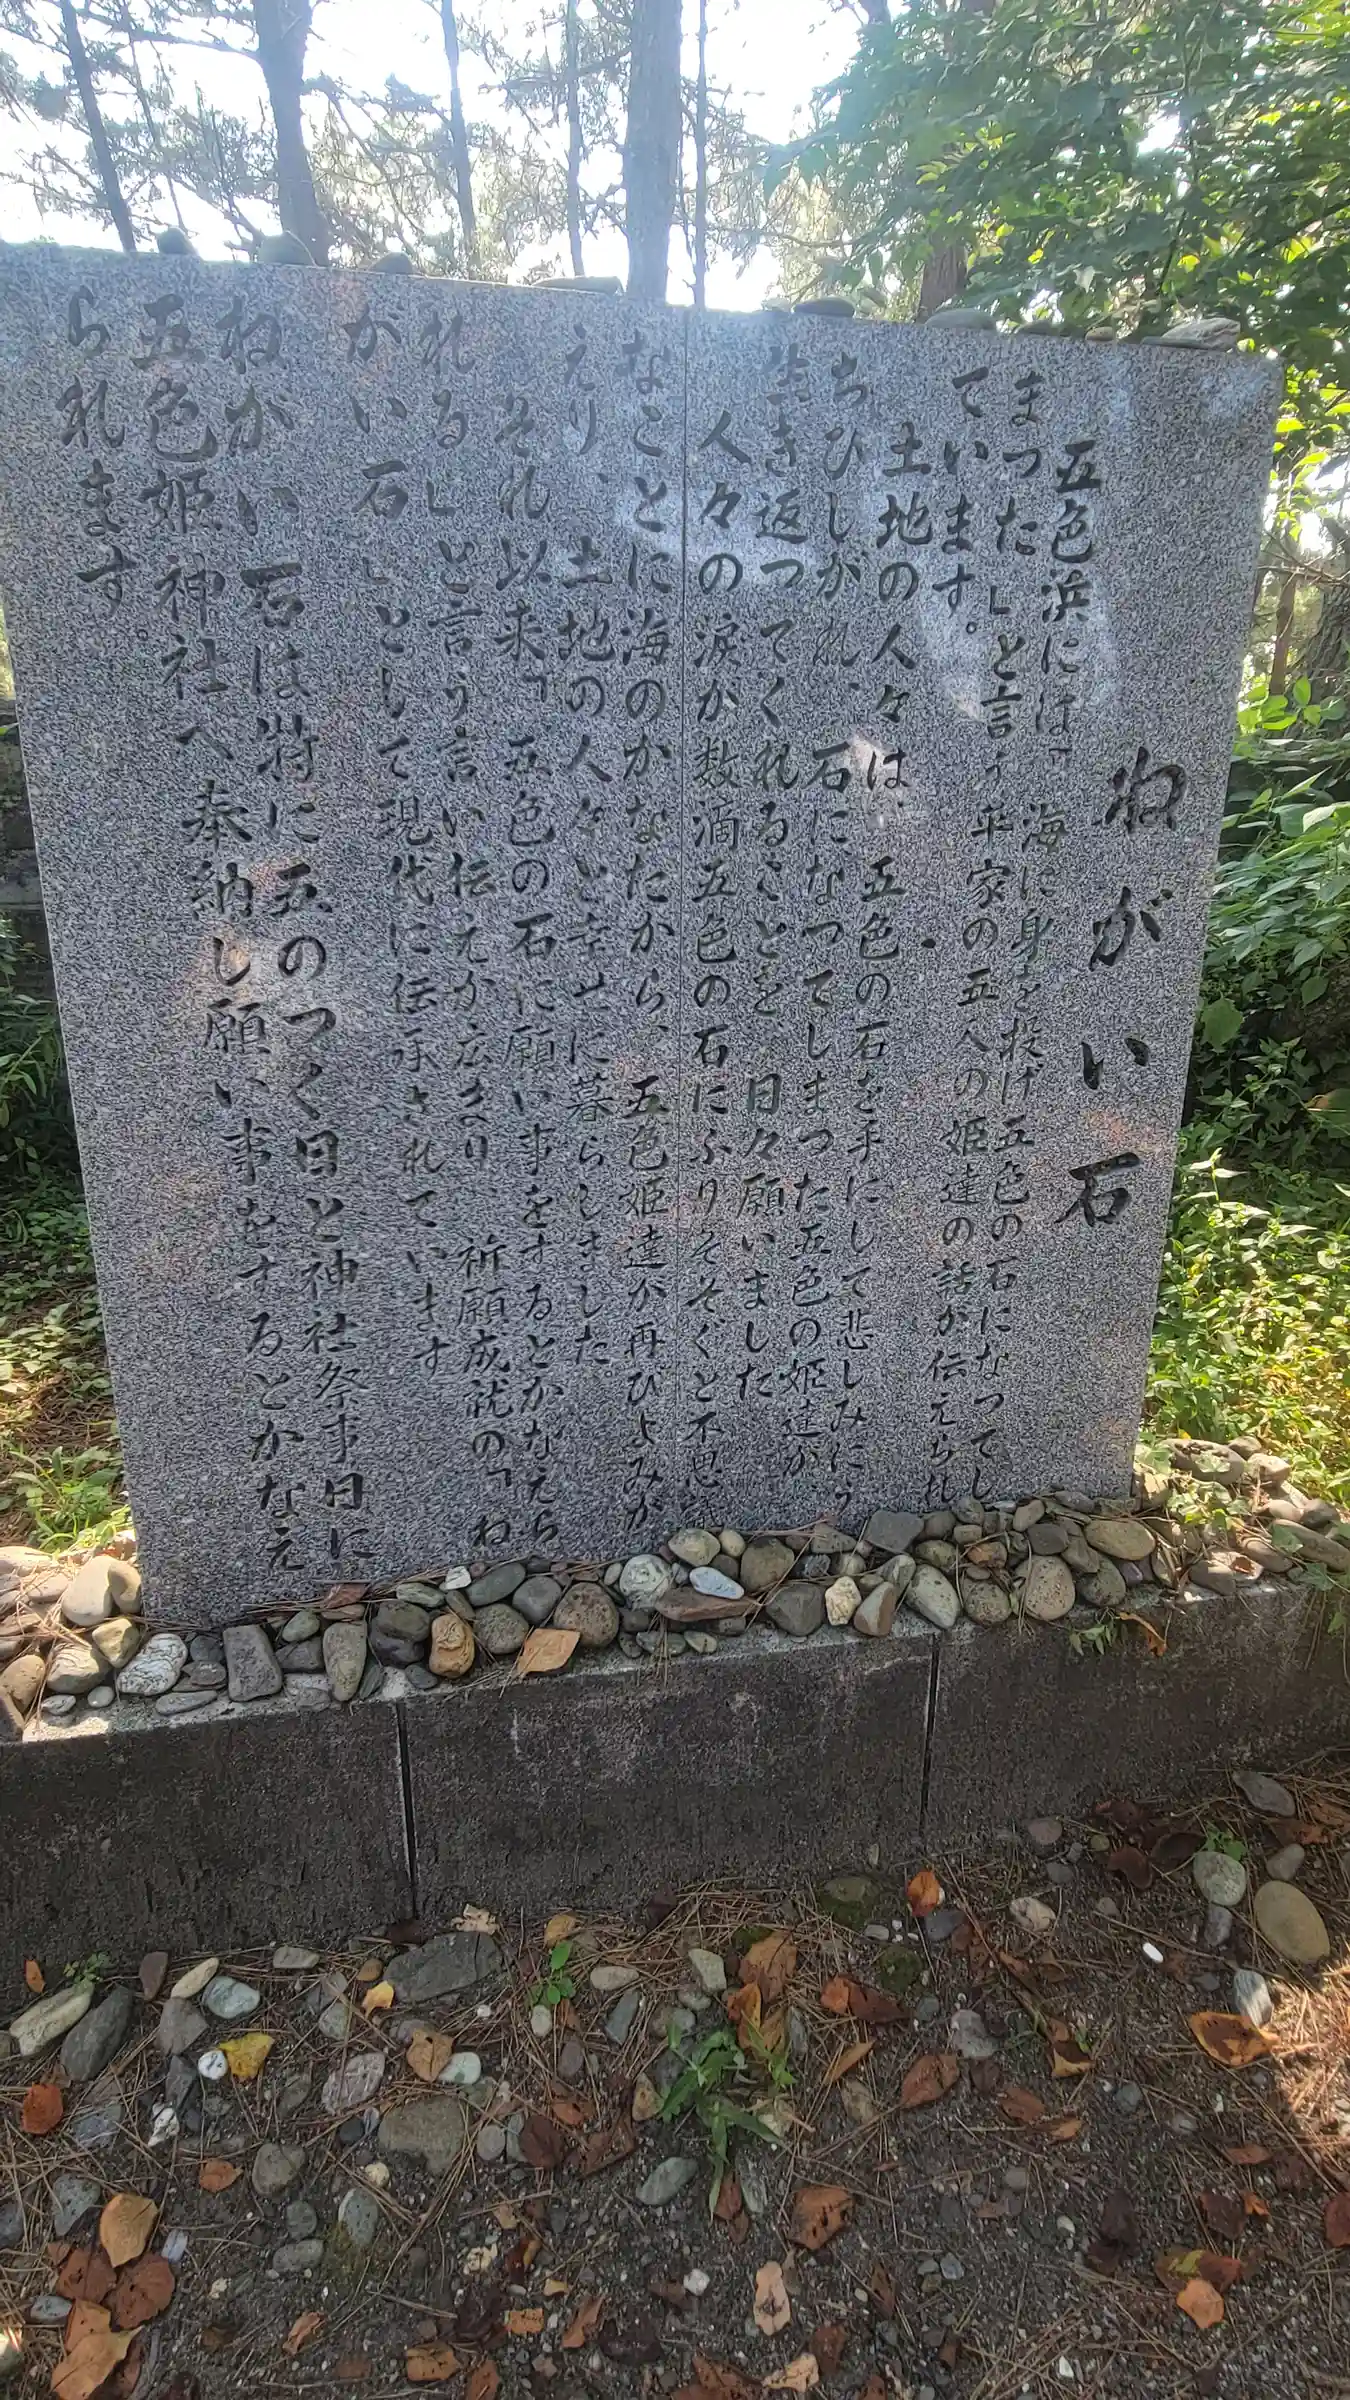 ねがい石
五色浜には「海に身を投げ五色の石になってし
まった」と言う平家の五人の姫達の話が伝えられ
ています。
土地の人々は、五色の石を手にして悲しみにう
ちひしがれ、石になってしまった五色の姫達が、
生き返ってくれることを、日々願いました
人々の涙が数滴五色の石にふりそそぐと不思議
なことに海のかなたから、五色姫達が再びよみが
えり土地の人々と幸せに暮らしました。
それ以来「五色の石に願い事をするとかなえら
れる」と言う言い伝えが広まり 祈願成就の「ね
がい石」として現代に伝承されています
ねがい石は特に五のつく日と神社祭事日に
五色姫神社へ奉納し願い事をするとかなえ
られます。